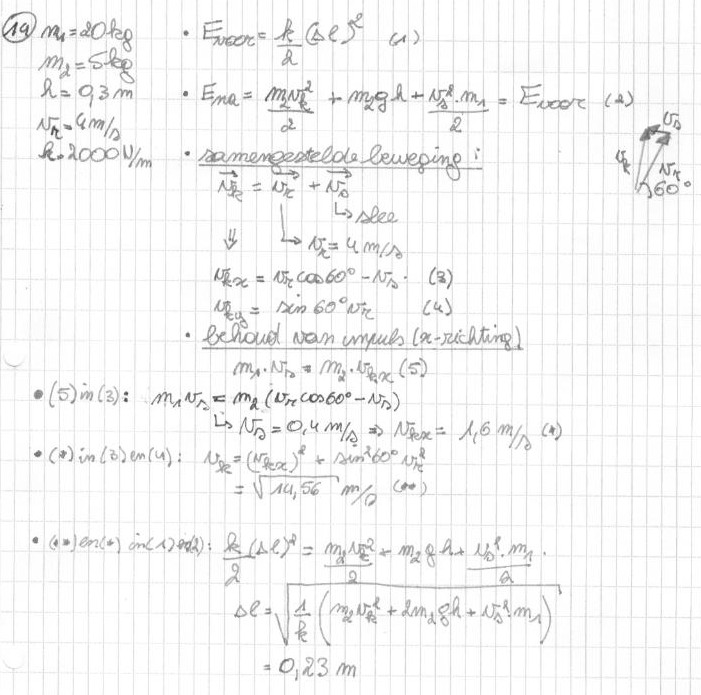 19
m₁ = 20 kg
m₂ = 5 kg
h = 0,3 m
v_r = 4 m/s
k = 2000 N/m
• E_voor = k/2 (Δl)² (1)
• E_na = m₂v_k²/2 + m₂gh + v_s².m₁/2 = E_voor (2)
• samengestelde beweging:
v_k = v_r + v_s
↳ slee
⇓ ↳ v_r = 4 m/s
v_kx = v_r cos60° - v_s. (3)
v_ky = sin 60° v_r (4)
v_s
v_k v_r
60°
• behoud van impuls (x-richting)
m₁.v_s = m₂.v_kx (5)
• (5) in (3): m₁v_s = m₂ (v_r cos60° - v_s)
↳ v_s = 0,4 m/s ⇒ v_kx = 1,6 m/s (*)
• (*) in (3) en (4): v_k = (v_kx)² + sin²60° v_r²
= √14,56 m/s (**)
• (**) en (*) in (1) en (2): k/2 (Δl)² = m₂v_k²/2 + m₂gh + v_s².m₁/2.
Δl = √(1/k (m₂v_k² + 2m₂gh + v_s².m₁))
= 0,23 m